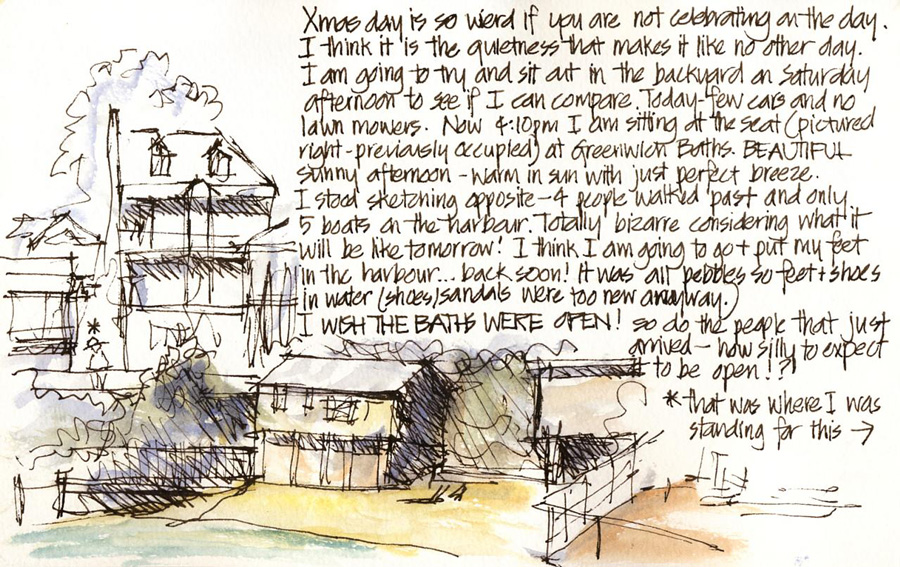 Xmas day is so wierd if you are not celebrating on the day.
I think it is the quietness that makes it like no other day.
I am going to try and sit out in the backyard on Saturday
afternoon to see if I can compare. Today-few cars and no
lawn mowers. Now 4:10pm I am sitting at the seat (pictured
right-previously occupied) at Greenwich Baths. BEAUTIFUL
sunny afternoon - warm in sun with just perfect breeze.
I stood sketching opposite - 4 people walked past and only
5 boats on the harbour. Totally bizarre considering what it
will be like tomorrow! I think I am going to go + put my feet
in the harbour... back soon! It was all pebbles so feet + shoes
in water (shoes/sandals were too new anyway.)
I WISH THE BATHS WERE OPEN! so do the people that just
arrived - how silly to expect
it to be open!?!
* that was where I was
standing for this →
*